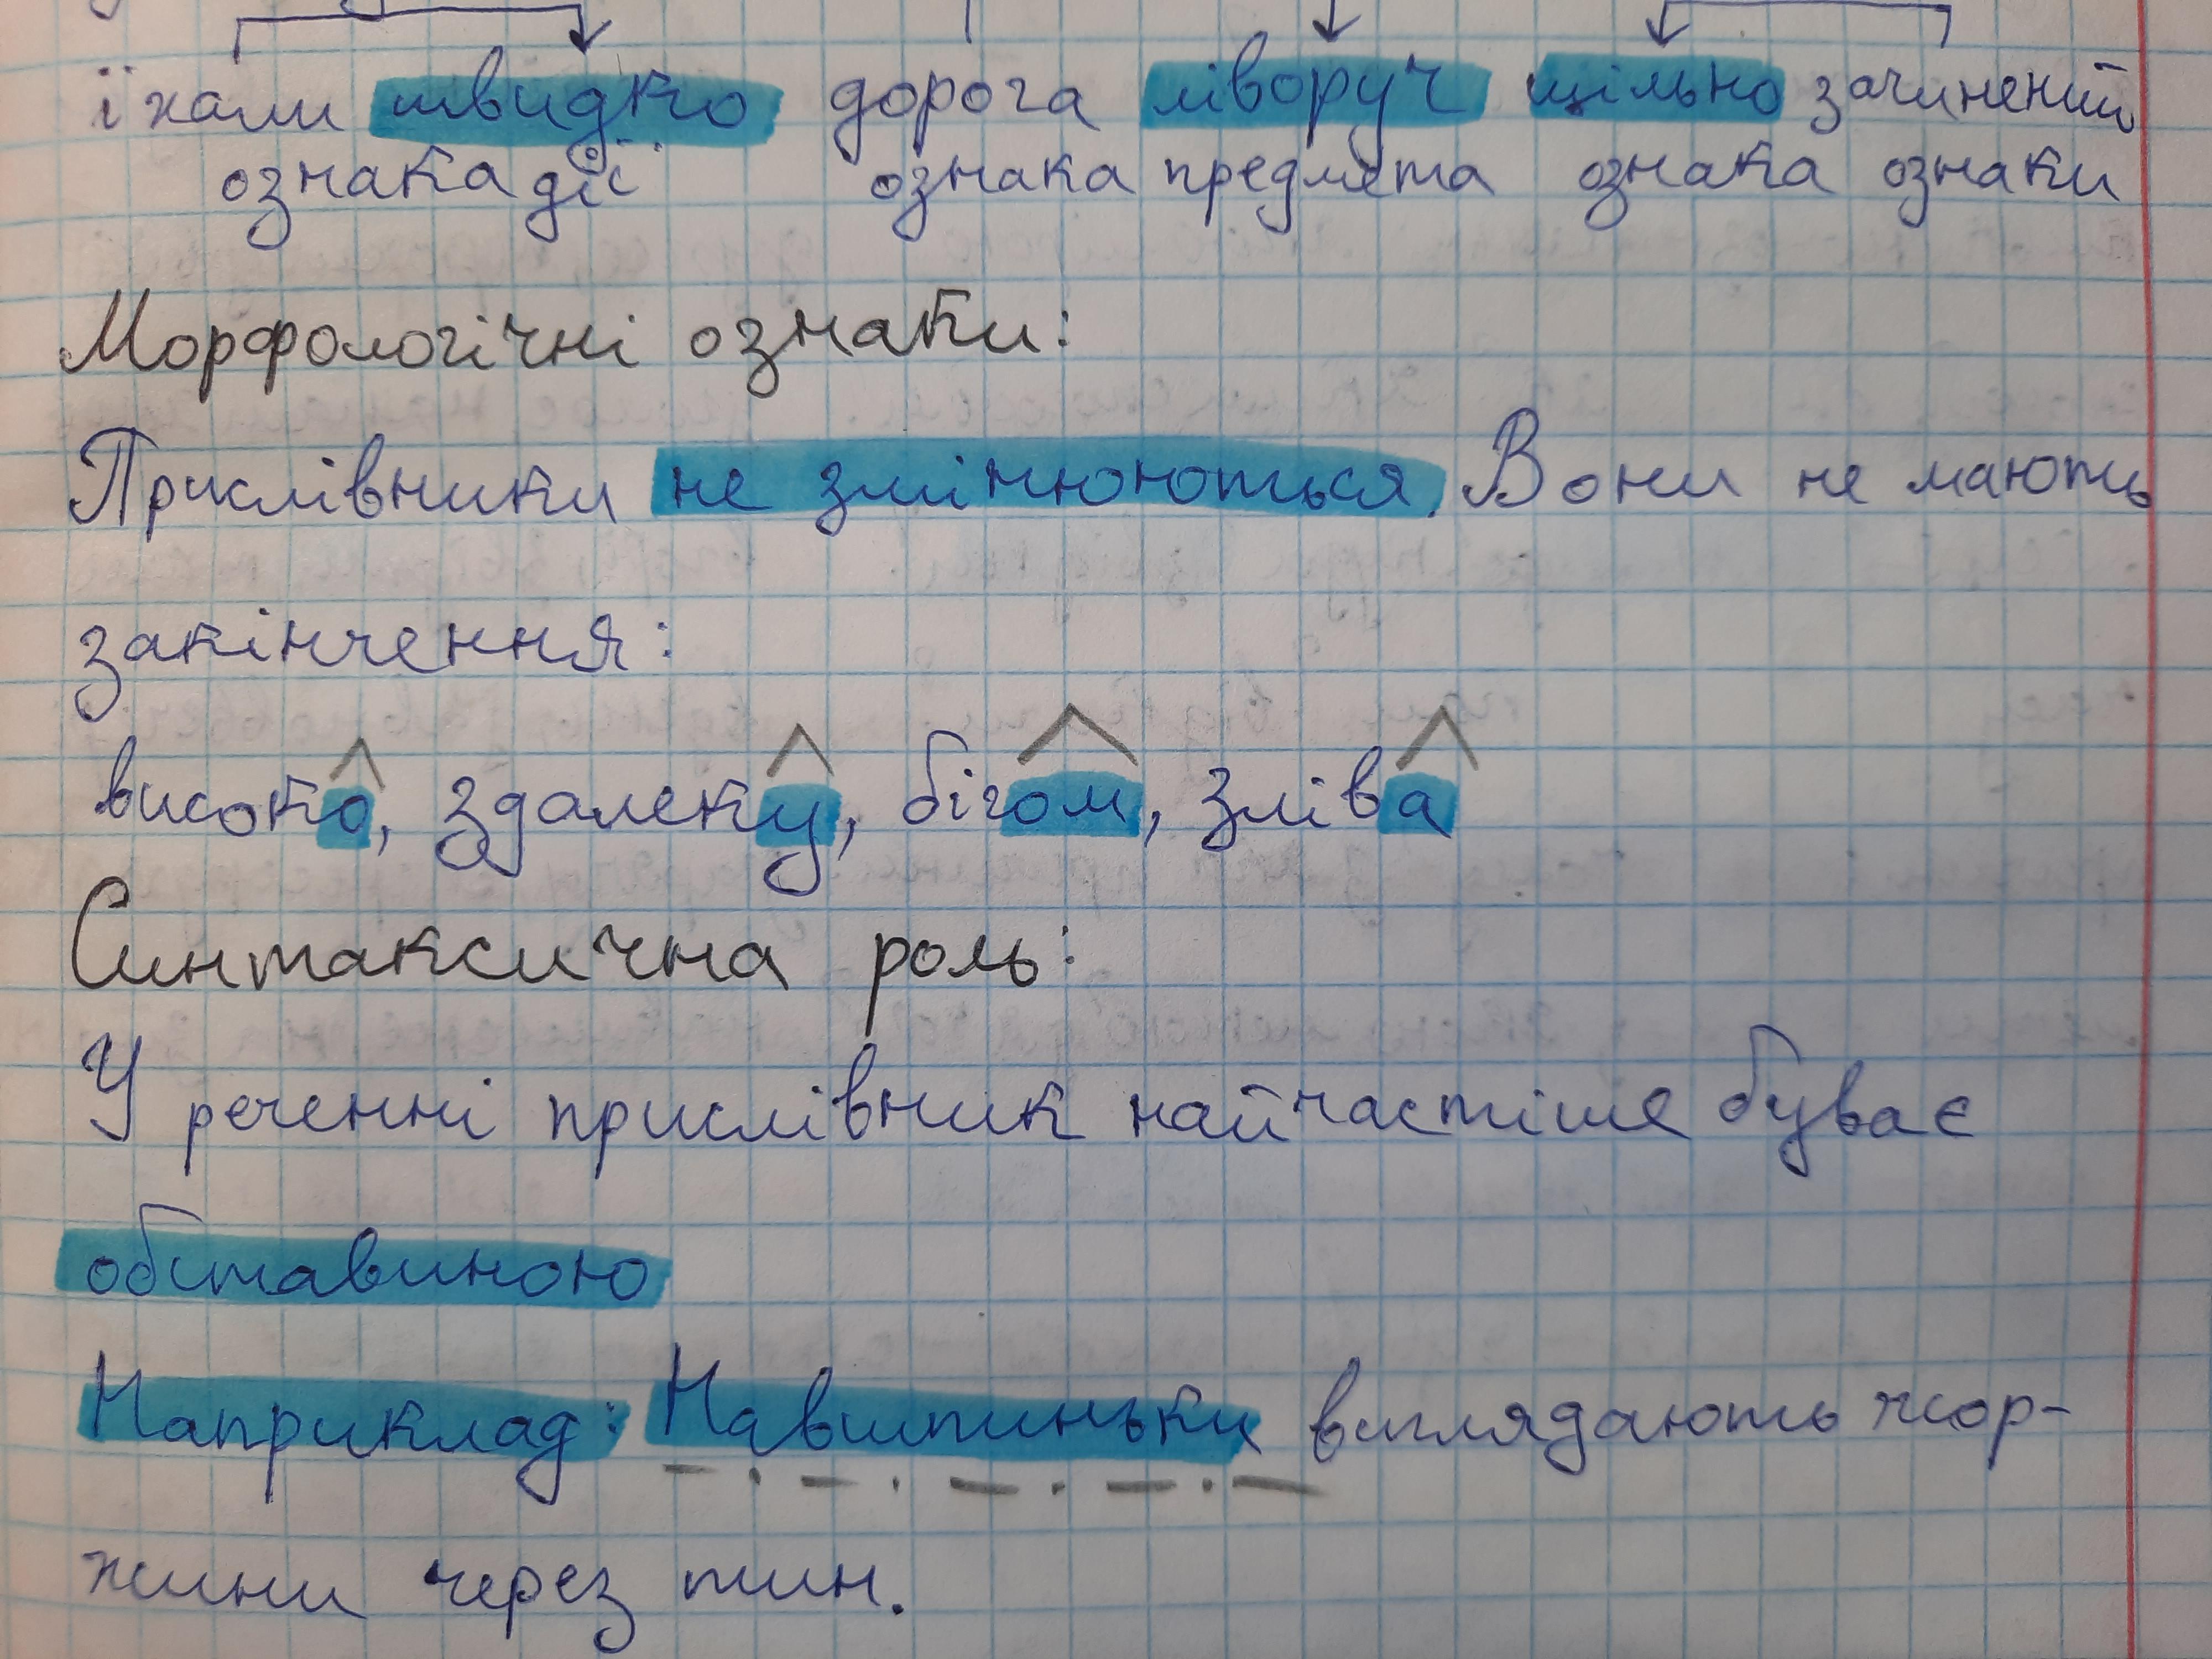 їхали швидко дорога ліворуч щільно зачинений
ознака дії ознака предмета ознака ознаки
Морфологічні ознаки:
Прислівники не змінюються. Вони не мають
закінчення:
високо, здалеку, бігом, зліва
Синтаксична роль:
У реченні прислівник найчастіше буває
обставиною
Наприклад: Навшпиньки виглядають жор-
жини через тин.